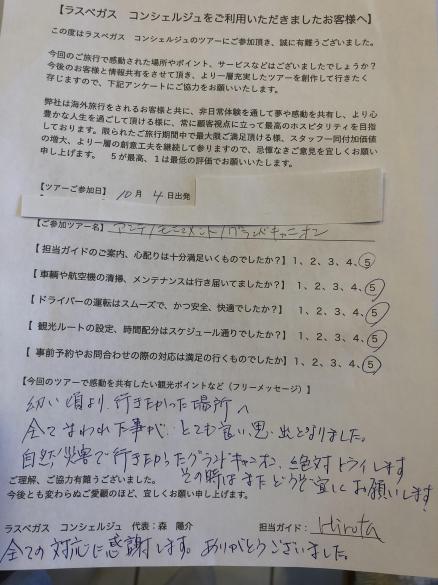 【ラスベガス　コンシェルジュをご利用いただきましたお客様へ】
この度はラスベガス　コンシェルジュのツアーにご参加頂き、誠に有難うございました。
今回のご旅行で感動された場所やポイント、サービスなどはございましたでしょうか？
今後のお客様と情報共有をさせて頂き、より一層充実したツアーを創作して行きたく
存じますので、下記アンケートにご協力をお願いいたします。
弊社は海外旅行をされるお客様と共に、非日常体験を通して夢や感動を共有し、より心
豊かな人生を過ごして頂ける様に、常に顧客視点に立って最高のホスピタリティを目指
しております。限られたご旅行期間中で最大限ご満足頂ける様、スタッフ一同付加価値
の増大、より一層の創意工夫を継続して参りますので、忌憚なきご意見を宜しくお願い
申し上げます。　５が最高、１は最低の評価でお願いいたします。
【ツアーご参加日】　10月　4日出発
【ご参加ツアー名】アンテ/モニュメント/グランドキャニオン
【 担当ガイドのご案内、心配りは十分満足いくものでしたか？】 1、2、3、4、5
【 車輌や航空機の清掃、メンテナンスは行き届いてましたか？】 1、2、3、4、5
【 ドライバーの運転はスムーズで、かつ安全、快適でしたか？】 1、2、3、4、5
【 観光ルートの設定、時間配分はスケジュール通りでしたか？】 1、2、3、4、5
【 事前予約やお問合わせの際の対応は満足の行くものでしたか】 1、2、3、4、5
【今回のツアーで感動を共有したい観光ポイントなど（フリーメッセージ）】
幼い頃より行きたかった場所へ
全てまわれた事が、とても良い思い出となりました。
自然災害で行きたかったグランドキャニオン、絶対トライします
ご理解、ご協力有難うございました。　その時はまたどうぞ宜しくお願いします!
今後とも変わらぬご愛顧のほど、宜しくお願い申し上げます。
ラスベガス　コンシェルジュ　代表：森　陽介　担当ガイド： Hirota
全ての対応に感謝します。ありがとうございました。